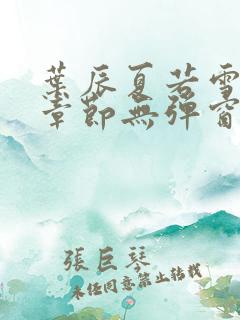 葉辰夏若雪
章節無彈窗
張巨琴
未經同意禁止轉載